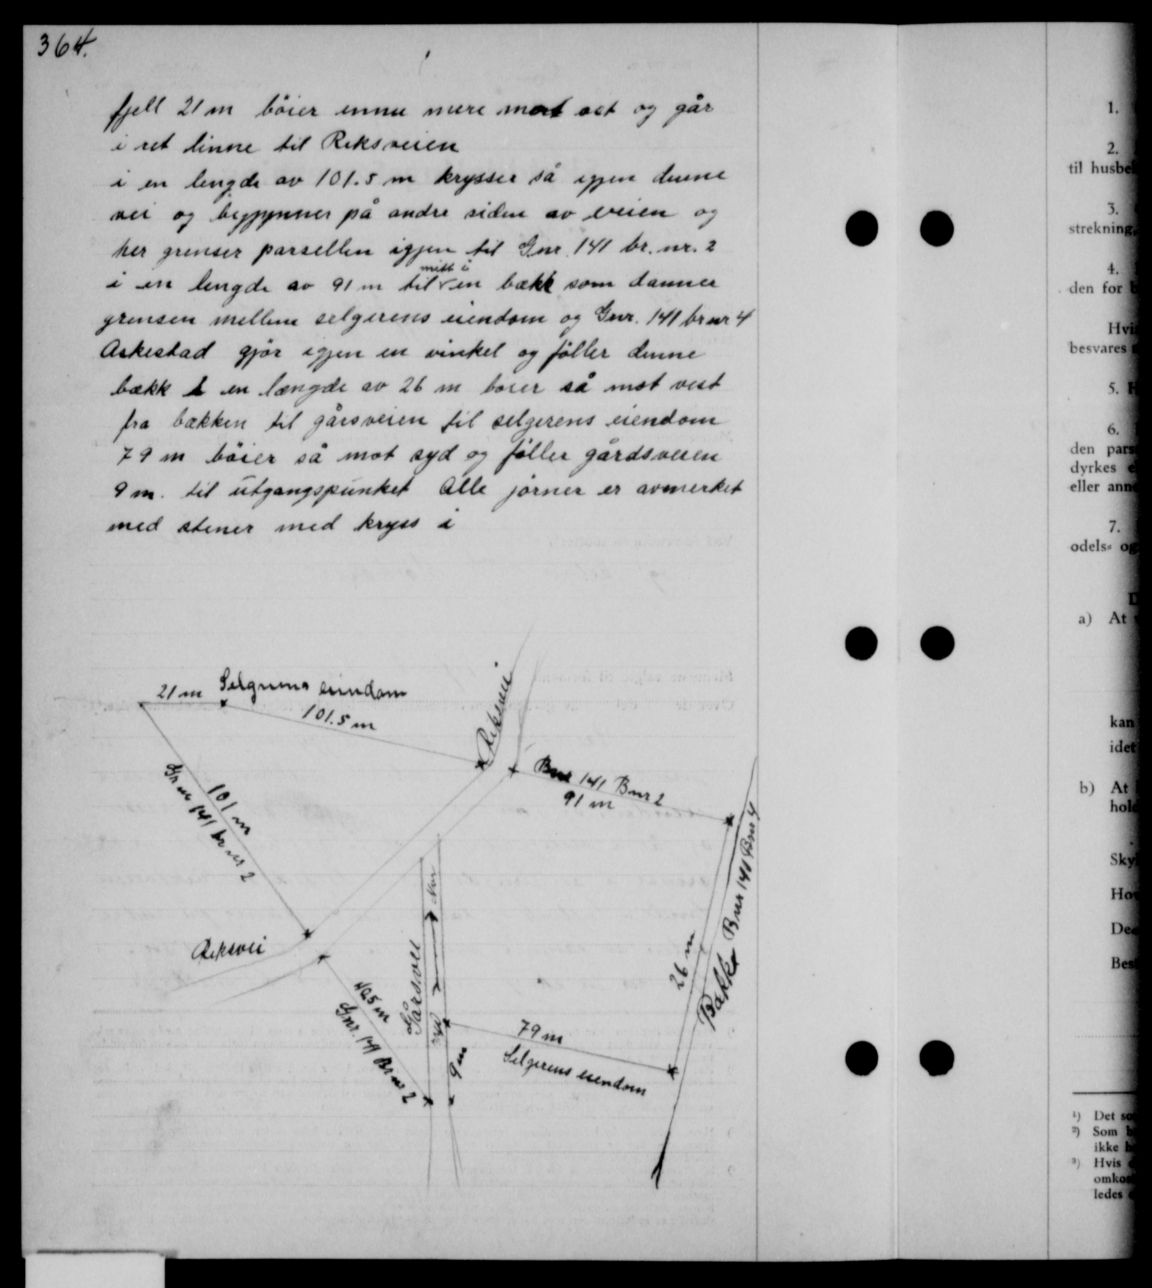 364.
fjell 21 m böier ennu mere mot ost og går
i ret linne til Riksveien
i en lengde av 101.5 m krysser så igjen denne
vei og begynner på andre siden av veien og
her grenser parsellen igjen til Gnr. 141 br. nr. 2
i en lengde av 91 m til mitt i en bækk som danner
grensen mellem selgerens eiendom og Gnr. 141 br nr 4
Askestad gjör igjen en vinkel og föller denne
bækk i en længde av 26 m boier så mot vest
fra bækken til gårsveien til selgerens eiendom
79 m böier så mot syd og föller gårdsveien
9 m. til utgangspunket Alle jörner er avmerket
med stener med kryss i
21 m Selgerens eiendom
101.5 m
Riksvei
Bnr 141 Bnr 2
91 m
101 m
Gnr 141 br nr 2
Riksvei
Gårsvei
Nor
Syd
9 m
Gnr. 141 Br nr 2
79 m
Selgerens eiendom
26 m
Bækk Bnr 141 Bnr 4
1.
2.
til husbe
3.
strekning,
4.
den for
Hvi
besvares
5.
6.
den pars
dyrkes
eller ann
7.
odels- og
a) At
kan
idet
b) At
hold
Sky
Hov
De
Bes
¹) Det so
²) Som
ikke
³) Hvis
omkos
ledes